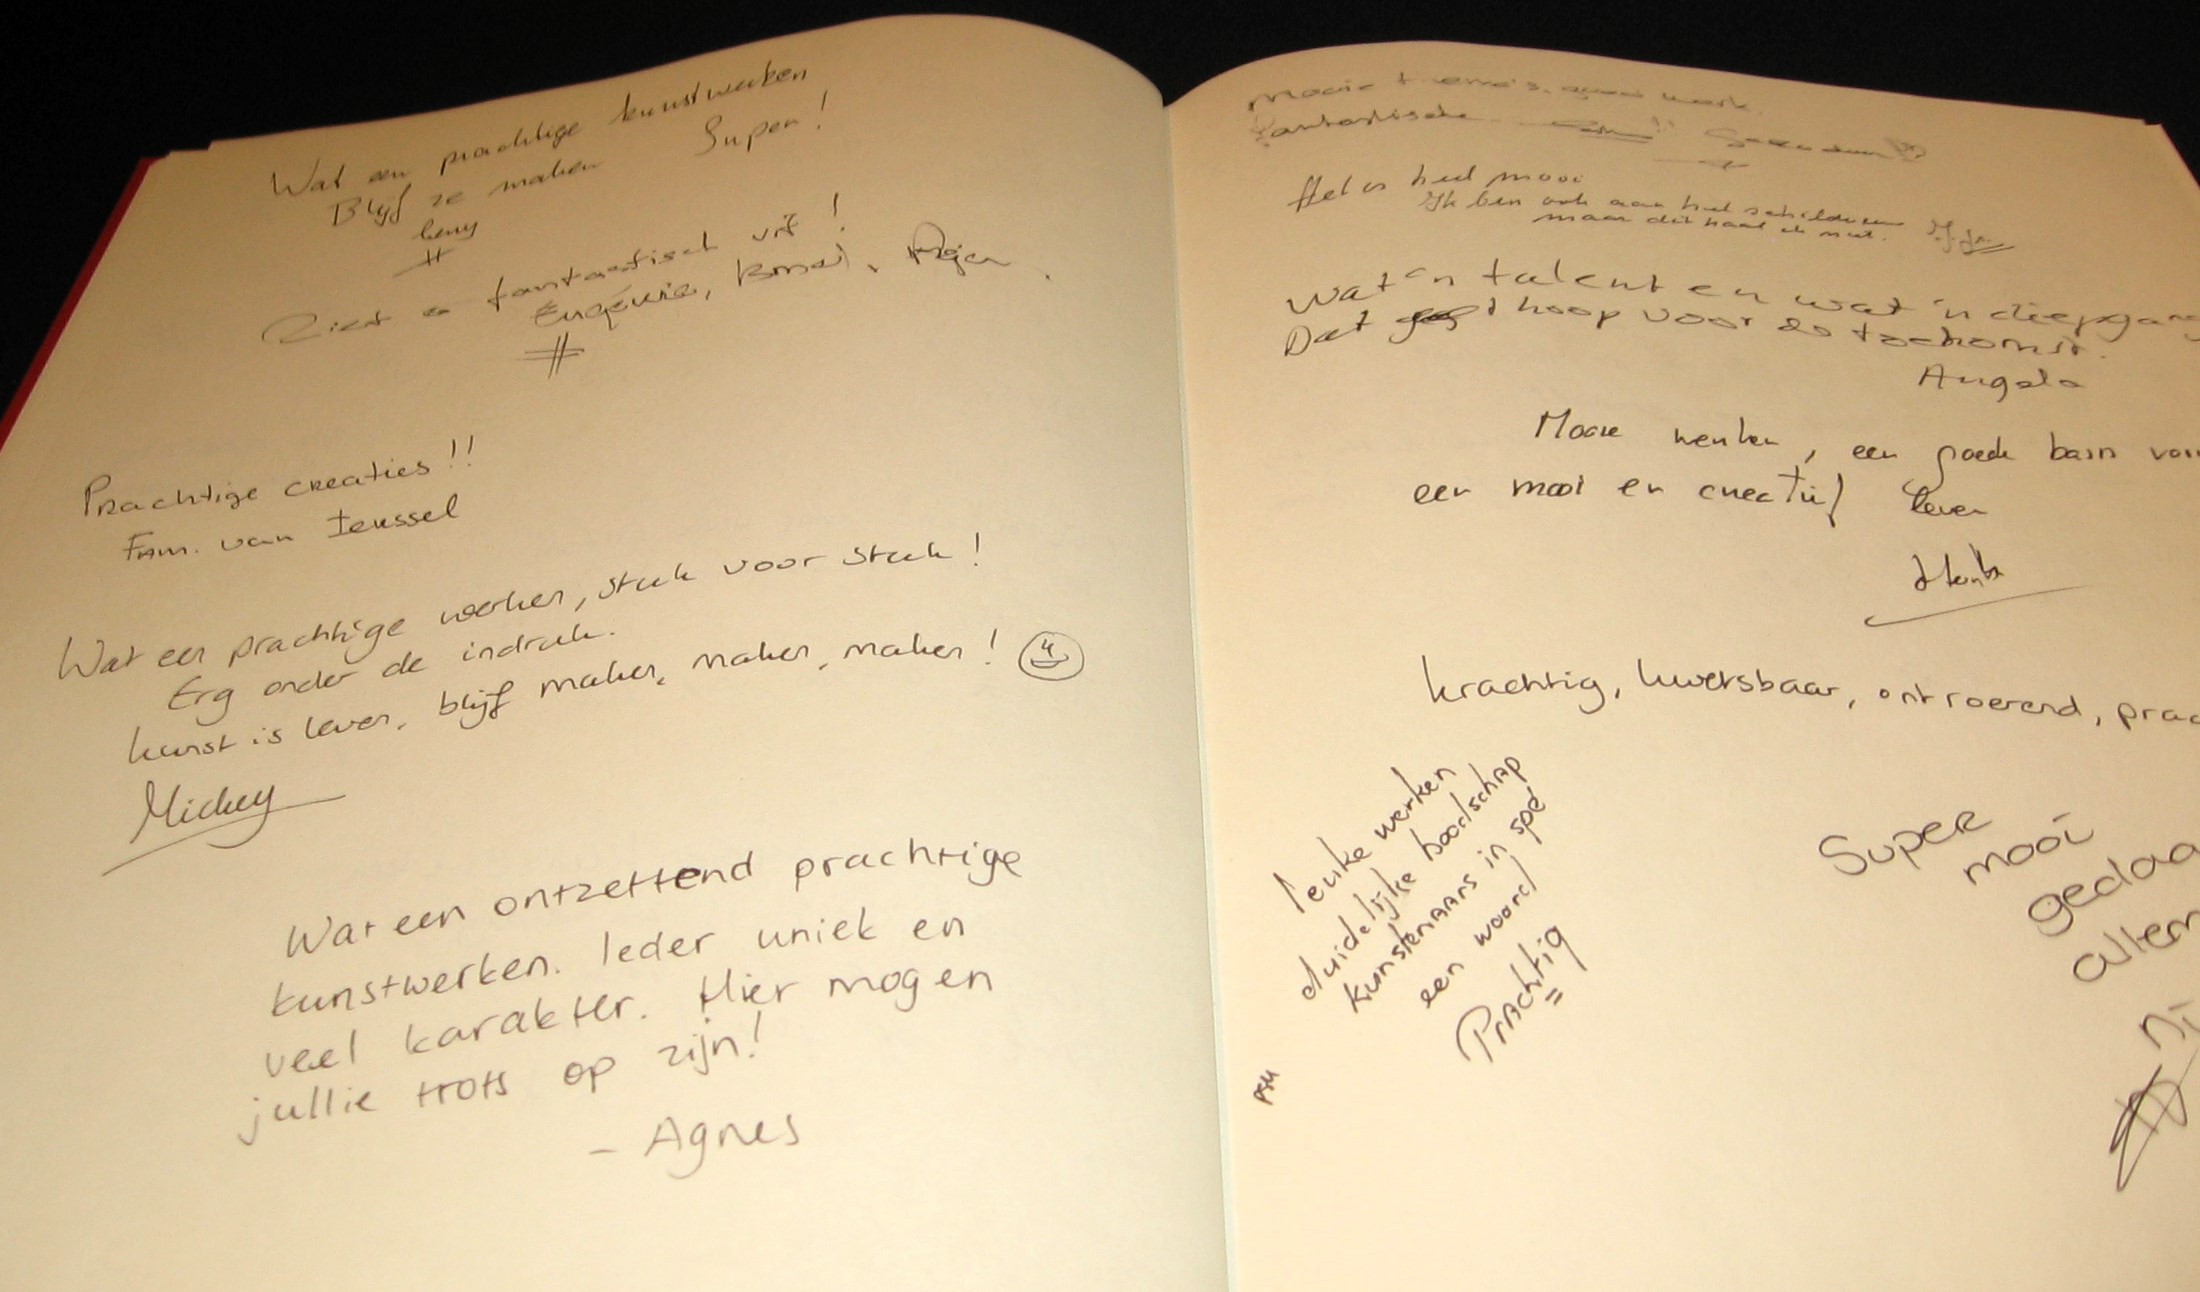 Wat een prachtige kunstwerken
Blijf ze maken Super!
Ziet er fantastisch uit!
Eugénie,
Prachtige creaties!!
Fam. van Ierssel
Wat een prachtige werken, stuk voor stuk!
Erg onder de indruk.
kunst is leven, blijf maken, maken, maken!
Mickey
Wat een ontzettend prachtige
kunstwerken. Ieder uniek en
veel karakter. Hier mogen
jullie trots op zijn!
- Agnes
Mooie thema's, goed werk
fantastische
Het is heel mooi
Ik ben ook aan het schilderen
maar dit haal ik niet.
Wat 'n talent en wat 'n diepgang
Dat geeft hoop voor de toekomst.
Angela
Mooie werken, een goede basis voor
een mooi en creatief leven
krachtig, kwetsbaar, ontroerend, prac
leuke werken
duidelijke boodschap
kunstenaars in spé
een woord
Prachtig
Super
mooi
gedaa
allem